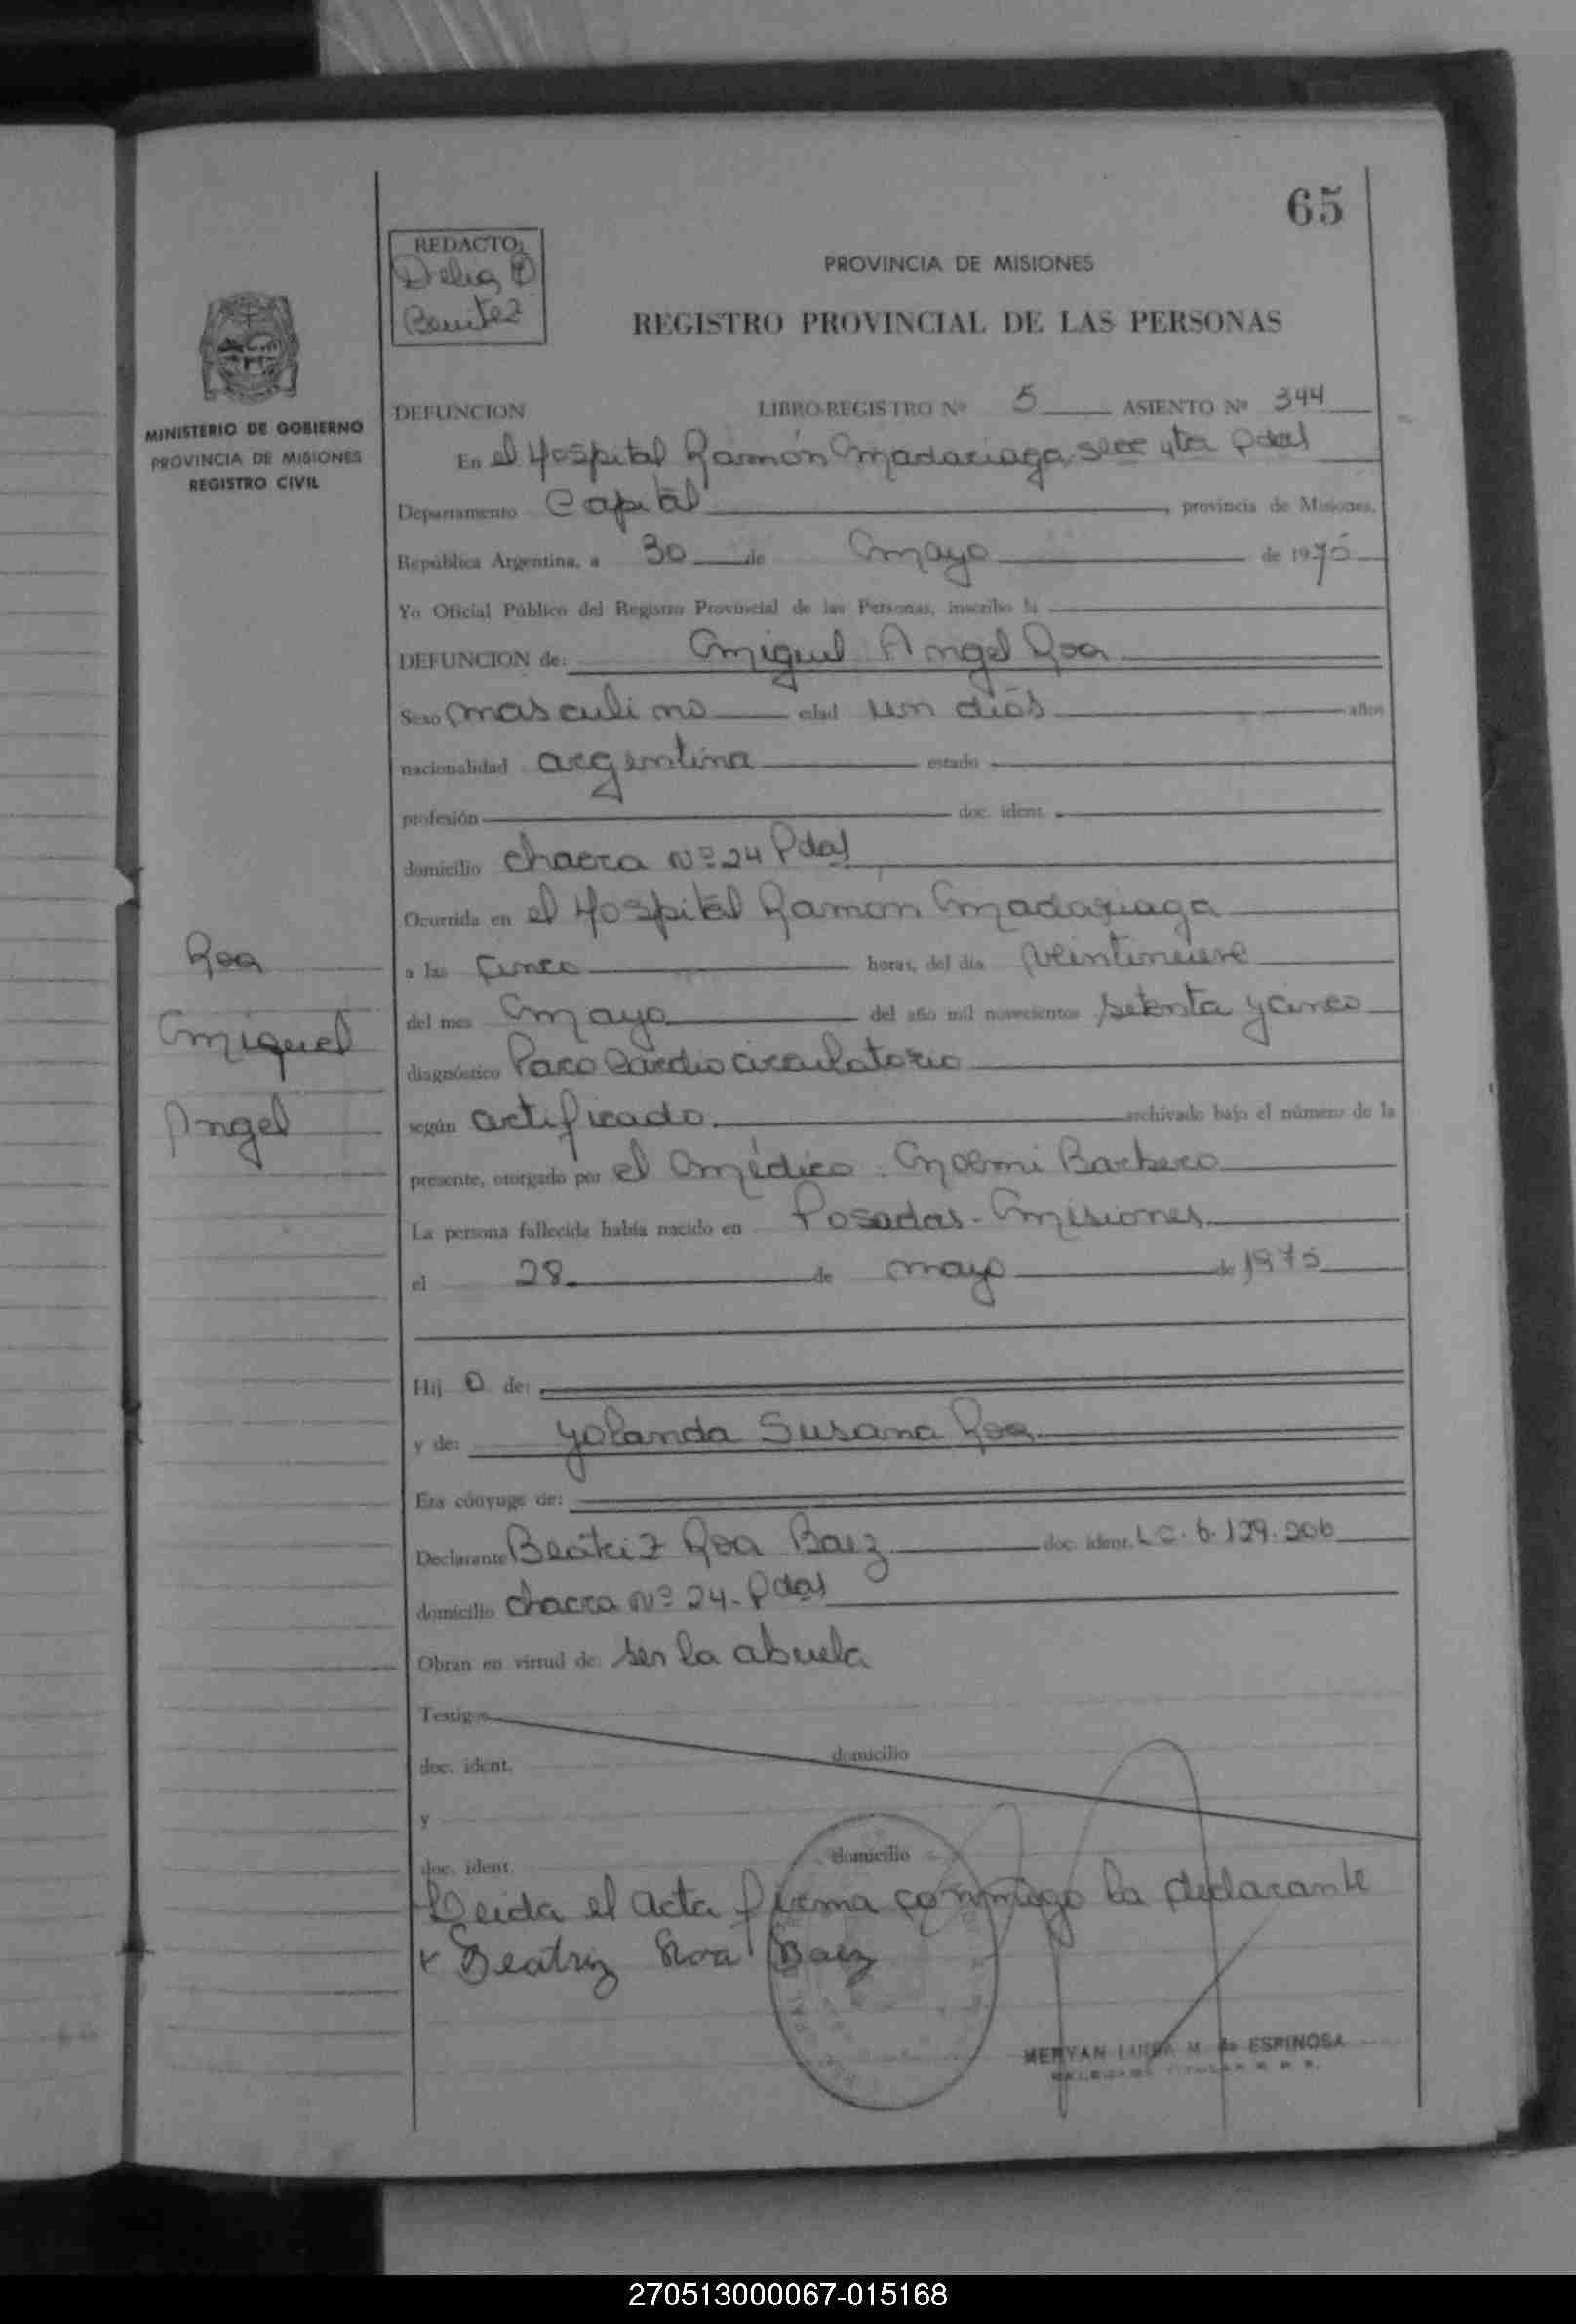 65
REDACTO:
Delia O
Benitez
PROVINCIA DE MISIONES
REGISTRO PROVINCIAL DE LAS PERSONAS
MINISTERIO DE GOBIERNO
PROVINCIA DE MISIONES
REGISTRO CIVIL
DEFUNCION LIBRO-REGISTRO Nº 5 ASIENTO Nº 344
En el Hospital Ramón Madariaga secc 4ta Pdas
Departamento Capital, provincia de Misiones,
República Argentina, a 30 de Mayo de 1975
Yo Oficial Público del Registro Provincial de las Personas, inscribo la
DEFUNCION de: Miguel Angel Roa
Sexo masculino edad un dias años
nacionalidad argentina estado
profesión doc. ident.
domicilio chacra Nº 24 Pdas
Ocurrida en el Hospital Ramón Madariaga
a las cinco horas, del día veintinueve
del mes Mayo del año mil novecientos setenta y cinco
diagnóstico Paro Cardio circulatorio
según certificado archivado bajo el número de la
presente, otorgado por el Médico: Noemi Barbero
La persona fallecida había nacido en Posadas - Misiones
el 28 de mayo de 1975
Roa
Miguel
Angel
Hij o de:
y de: Yolanda Susana Roa
Era cónyuge de:
Declarante Beatriz Roa Baez doc. ident. L C. 6.129.206
domicilio chacra Nº 24 - Pdas
Obran en virtud de: ser la abuela
Testigos
doc. ident. domicilio
y
doc. ident. domicilio
Leida el acta firma conmigo la declarante
x Beatriz Roa Baez
MERYAN LUISA M. de ESPINOSA
270513000067-015168